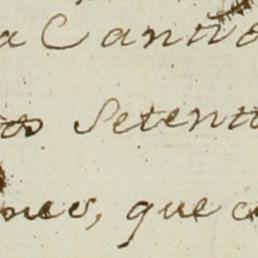 a Canti
tos Setent
nes, que c